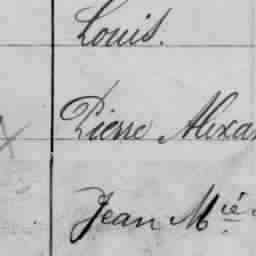 Louis.
Pierre Alexan
Jean Mié